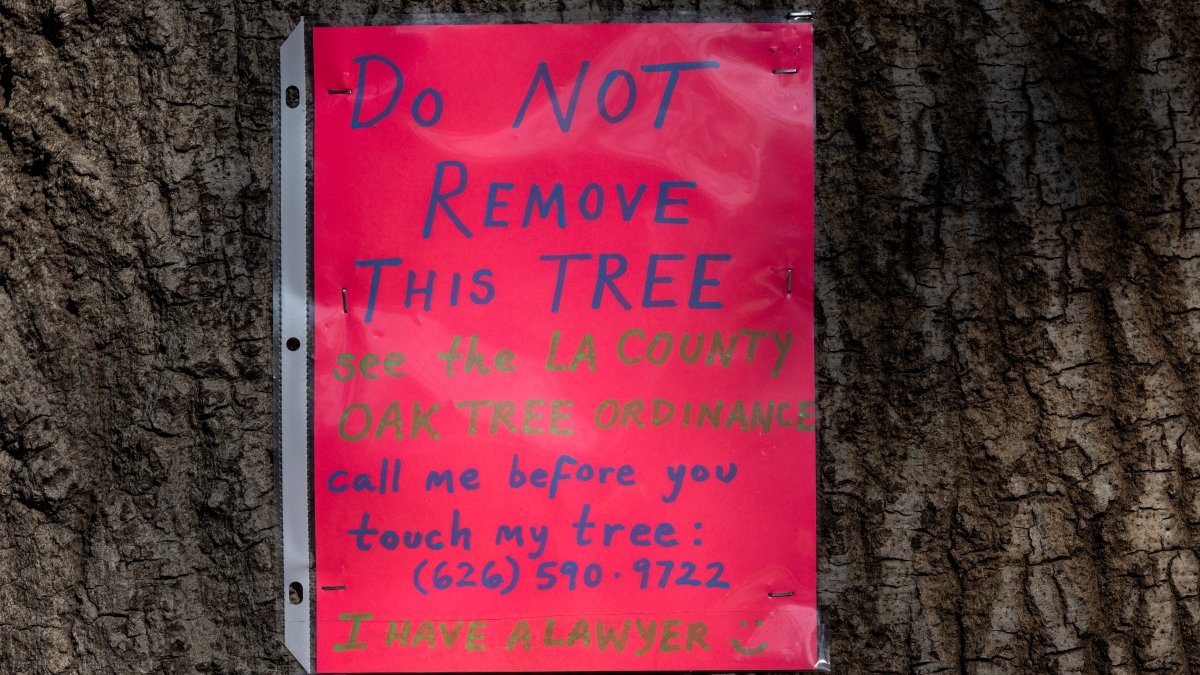 Do NOT
REMOVE
THIS TREE
see the LA COUNTY
OAK TREE ORDINANCE
call me before you
touch my tree:
(626) 590·9722
I HAVE A LAWYER :)